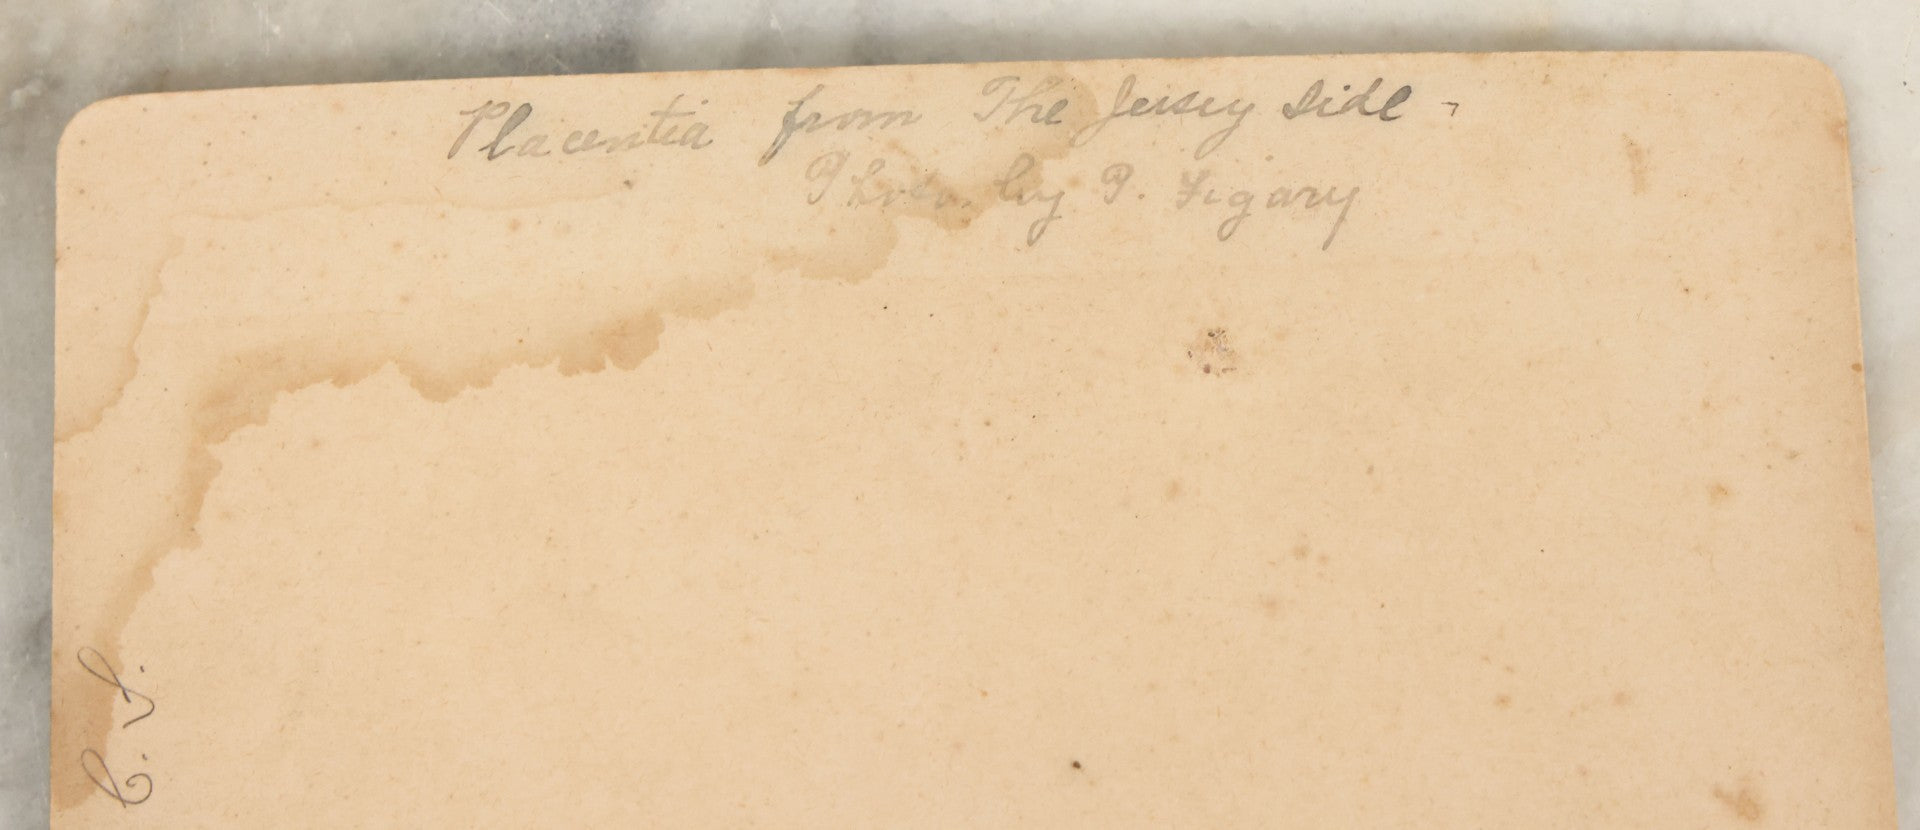 Placentia from The Jersey Side -
Photo. by P. Figary
C. S.